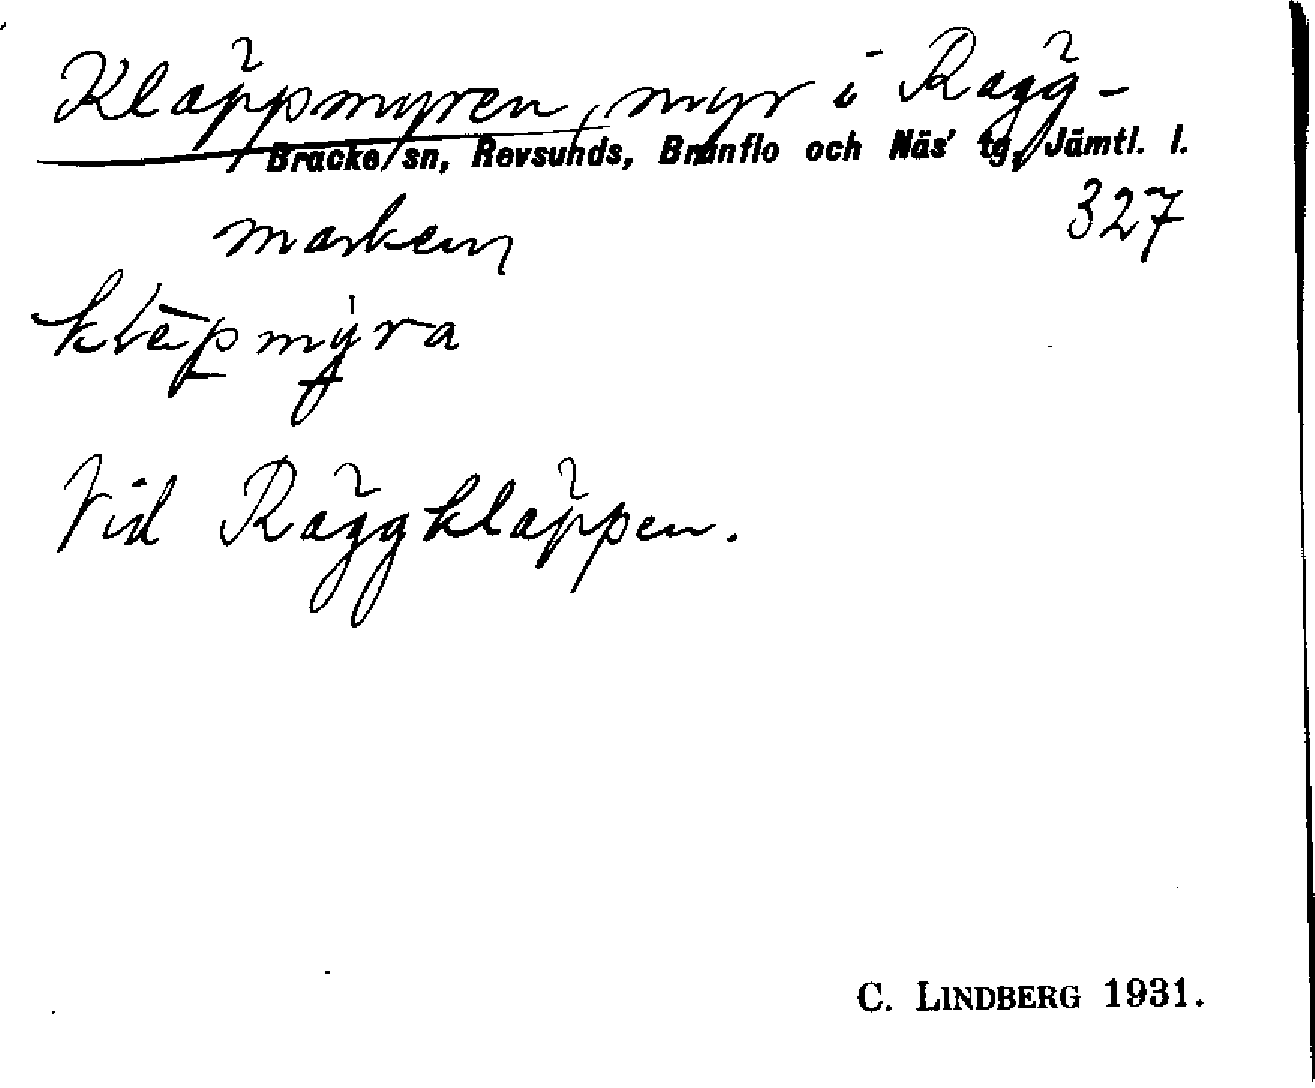 Kläppmyren, myr i Rägg-
Bräcke sn, Revsunds, Brunflo och Näs' tg, Jämtl. l.
marken 327
kläpmyra
Vid Räggkläppen.
C. LINDBERG 1931.